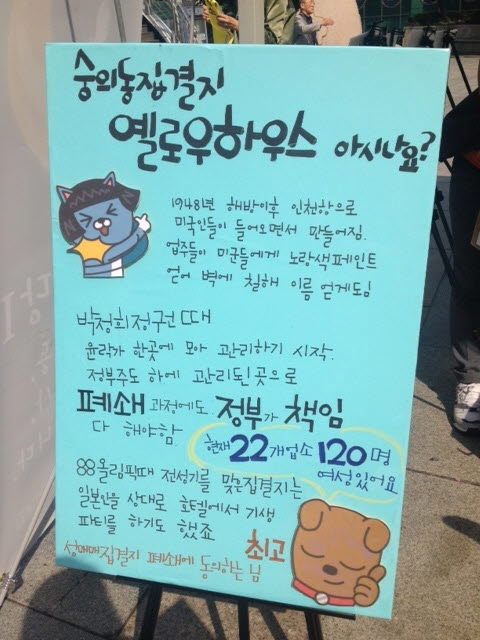 숭의동집결지
옐로우하우스 아시나요?
1948년 해방이후 인천항으로
미국인들이 들어오면서 만들어짐.
업주들이 미군들에게 노랑색페인트
얻어 벽에 칠해 이름 얻게됨
박정희정권 때
윤락가 한곳에 모아 관리하기 시작.
정부주도 하에 관리된곳으로
폐쇄 과정에도 정부가 책임
다 해야함.
현재 22개업소 120명
여성있어요
88올림픽때 전성기를 맞은집결지는
일본인을 상대로 호텔에서 기생
파티를 하기도 했죠
성매매집결지 폐쇄에 동의하는 님 최고